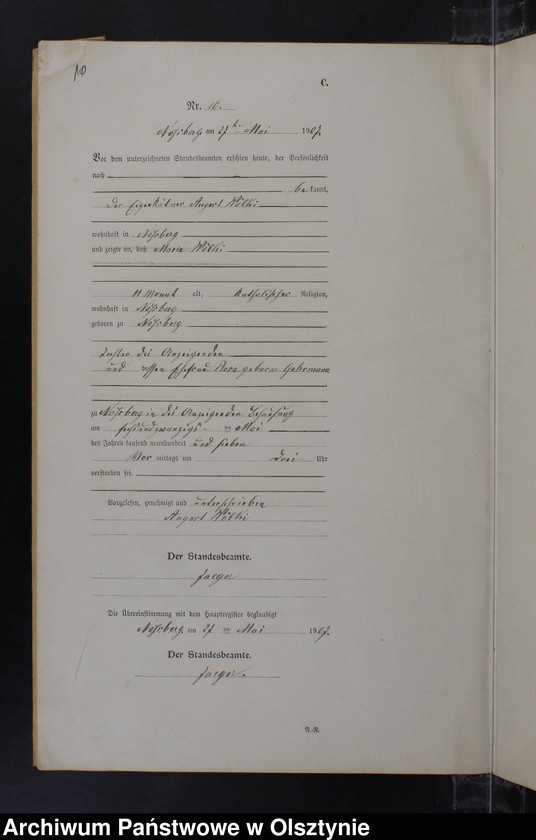 10
C.
Nr. 10.
Noßberg am 27ten Mai 1907.
Vor dem unterzeichneten Standesbeamten erschien heute, der Persönlichkeit
nach
be kannt,
der Eigenkätner August Wölki
wohnhaft in Noßberg
und zeigte an, daß Maria Wölki
11 Monat alt, katholischer Religion,
wohnhaft in Noßberg
geboren zu Noßberg
Tochter des Anzeigenden
und dessen Ehefrau Rosa geborne Gehrmann
zu Noßberg in des Anzeigenden Behausung
am sechsundzwanzigsten Mai
des Jahres tausend neunhundert und sieben
Vor mittags um drei Uhr
verstorben sei.
Vorgelesen, genehmigt und unterschrieben
August Wölki
Der Standesbeamte.
Jaeger
Die Übereinstimmung mit dem Hauptregister beglaubigt
Noßberg am 27 ten Mai 1907.
Der Standesbeamte.
Jaeger.
N.-R.
Archiwum Państwowe w Olsztynie